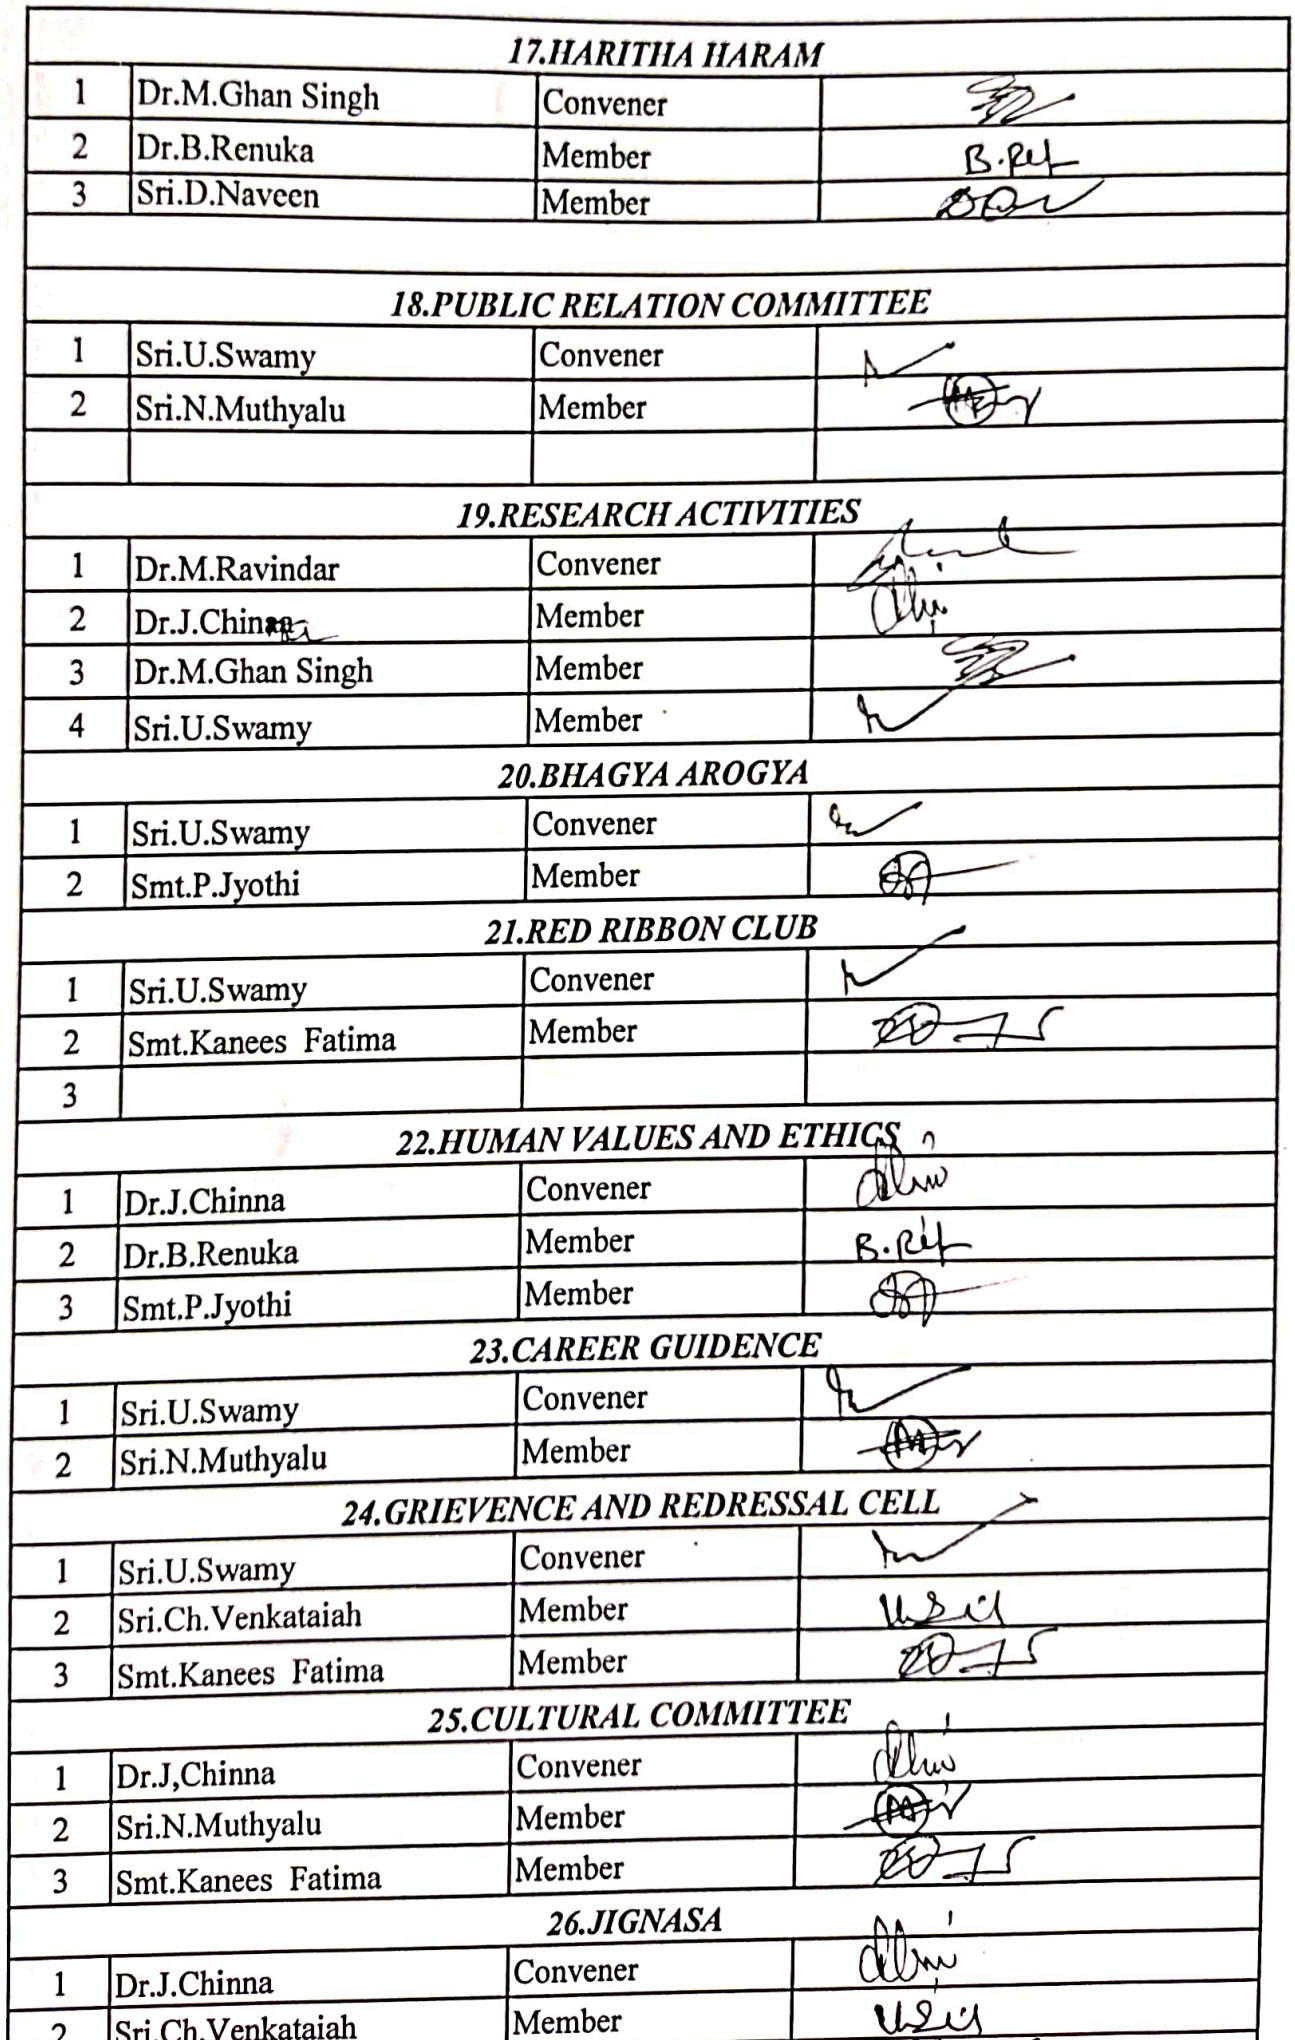 17.HARITHA HARAM
1 Dr.M.Ghan Singh Convener
2 Dr.B.Renuka Member
3 Sri.D.Naveen Member
18.PUBLIC RELATION COMMITTEE
1 Sri.U.Swamy Convener
2 Sri.N.Muthyalu Member
19.RESEARCH ACTIVITIES
1 Dr.M.Ravindar Convener
2 Dr.J.Chinna Member
3 Dr.M.Ghan Singh Member
4 Sri.U.Swamy Member
20.BHAGYA AROGYA
1 Sri.U.Swamy Convener
2 Smt.P.Jyothi Member
21.RED RIBBON CLUB
1 Sri.U.Swamy Convener
2 Smt.Kanees Fatima Member
3
22.HUMAN VALUES AND ETHICS
1 Dr.J.Chinna Convener
2 Dr.B.Renuka Member
3 Smt.P.Jyothi Member
23.CAREER GUIDENCE
1 Sri.U.Swamy Convener
2 Sri.N.Muthyalu Member
24.GRIEVENCE AND REDRESSAL CELL
1 Sri.U.Swamy Convener
2 Sri.Ch.Venkataiah Member
3 Smt.Kanees Fatima Member
25.CULTURAL COMMITTEE
1 Dr.J,Chinna Convener
2 Sri.N.Muthyalu Member
3 Smt.Kanees Fatima Member
26.JIGNASA
1 Dr.J.Chinna Convener
2 Sri.Ch.Venkataiah Member